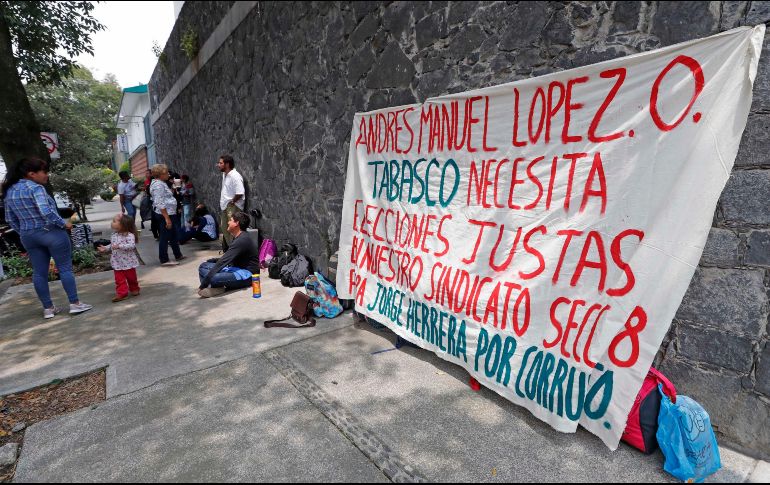 ANDRES MANUEL LOPEZ. O.
TABASCO NECESITA
ELECCIONES JUSTAS
NUESTRO SINDICATO SECC 8
JORGE HERRERA POR CORRUO.